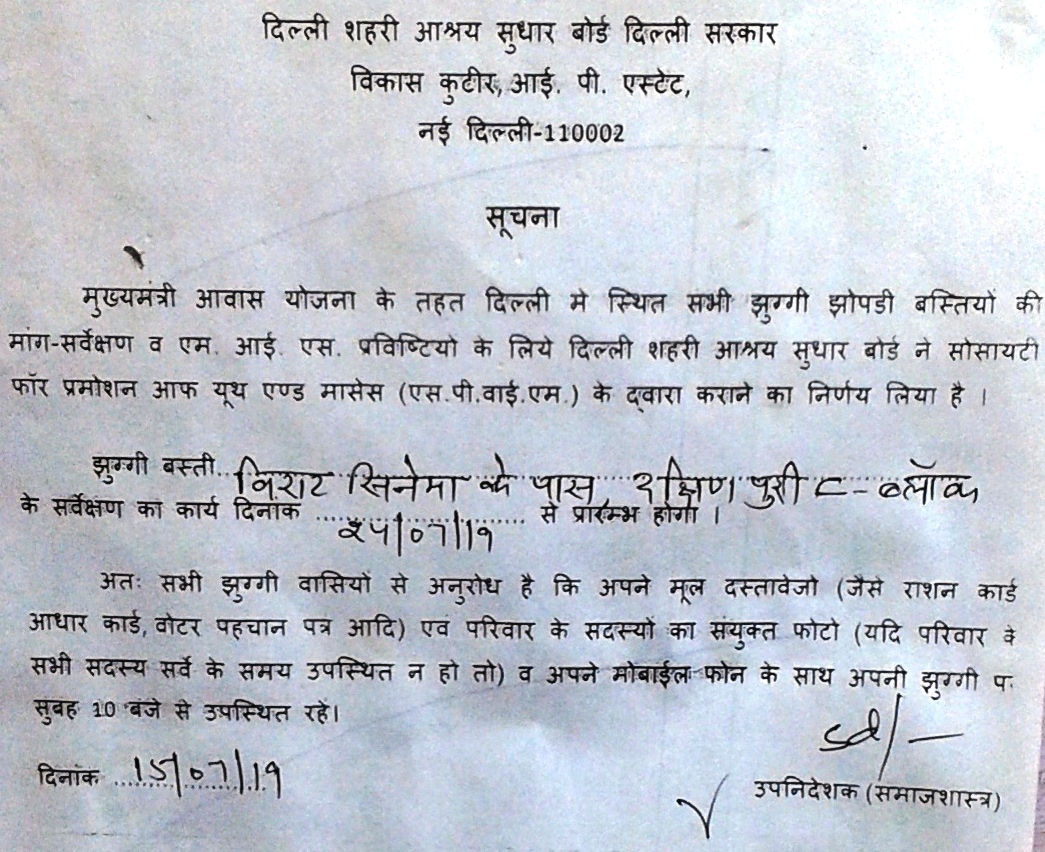 दिल्ली शहरी आश्रय सुधार बोर्ड दिल्ली सरकार
विकास कुटीर, आई. पी. एस्टेट,
नई दिल्ली-110002
सूचना
मुख्यमंत्री आवास योजना के तहत दिल्ली मे स्थित सभी झुग्गी झोपडी बस्तियों की
मांग-सर्वेक्षण व एम. आई. एस. प्रविष्टियो के लिये दिल्ली शहरी आश्रय सुधार बोर्ड ने सोसायटी
फॉर प्रमोशन आफ यूथ एण्ड मासेस (एस.पी.वाई.एम.) के द्वारा कराने का निर्णय लिया है ।
झुग्गी बस्ती.. विराट सिनेमा के पास, दक्षिण पुरी C- ब्लॉक
के सर्वेक्षण का कार्य दिनांक 24/07/19 से प्रारम्भ होगा ।
अतः सभी झुग्गी वासियों से अनुरोध है कि अपने मूल दस्तावेजो (जैसे राशन कार्ड
आधार कार्ड, वोटर पहचान पत्र आदि) एवं परिवार के सदस्यों का संयुक्त फोटो (यदि परिवार के
सभी सदस्य सर्वे के समय उपस्थित न हो तो) व अपने मोबाईल फोन के साथ अपनी झुग्गी प
सुबह 10 बजे से उपस्थित रहे।
sd/-
दिनांक 15/07/19
उपनिदेशक (समाजशास्त्र)